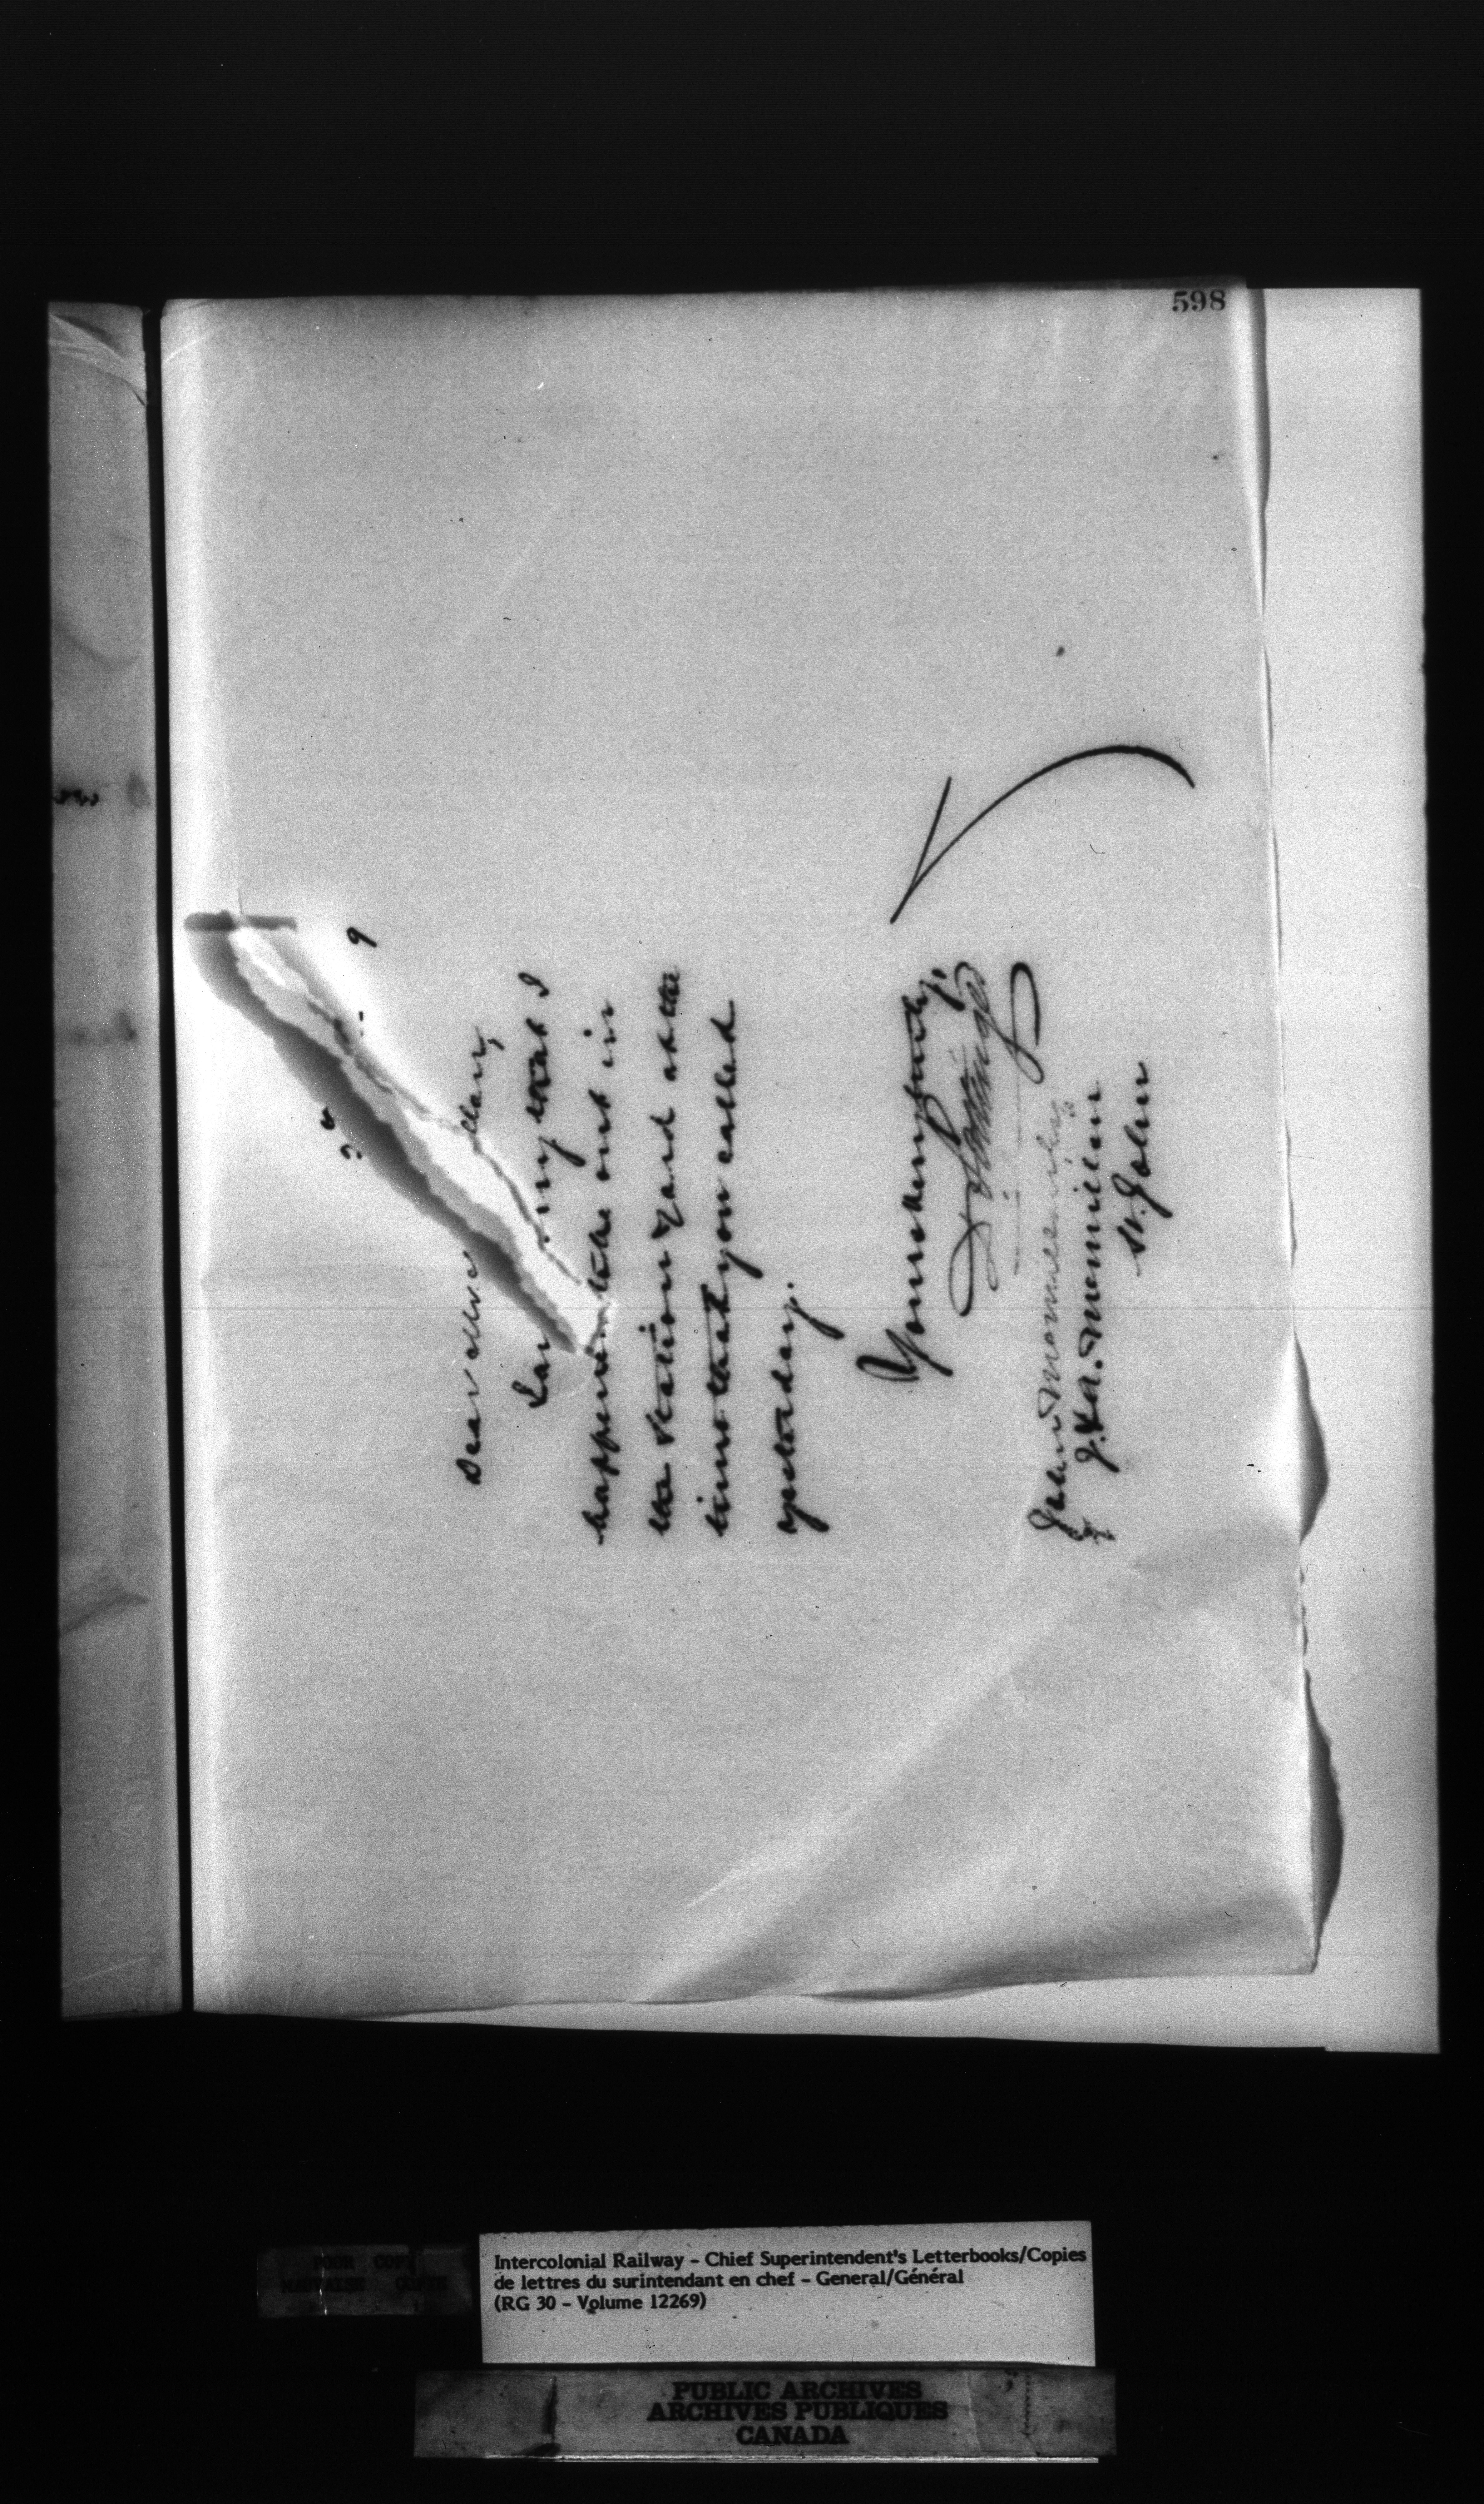 598
Dear Mr llan,
I a very that I
happened to be out in
the station yard at the
time that you called
yesterday.
Yours very truly,
John McMillan
J. & A. McMillan
St. John
POOR COPY
MAUVAISE COPIE
Intercolonial Railway - Chief Superintendent's Letterbooks/Copies
de lettres du surintendant en chef - General/Général
(RG 30 - Volume 12269)
PUBLIC ARCHIVES
ARCHIVES PUBLIQUES
CANADA